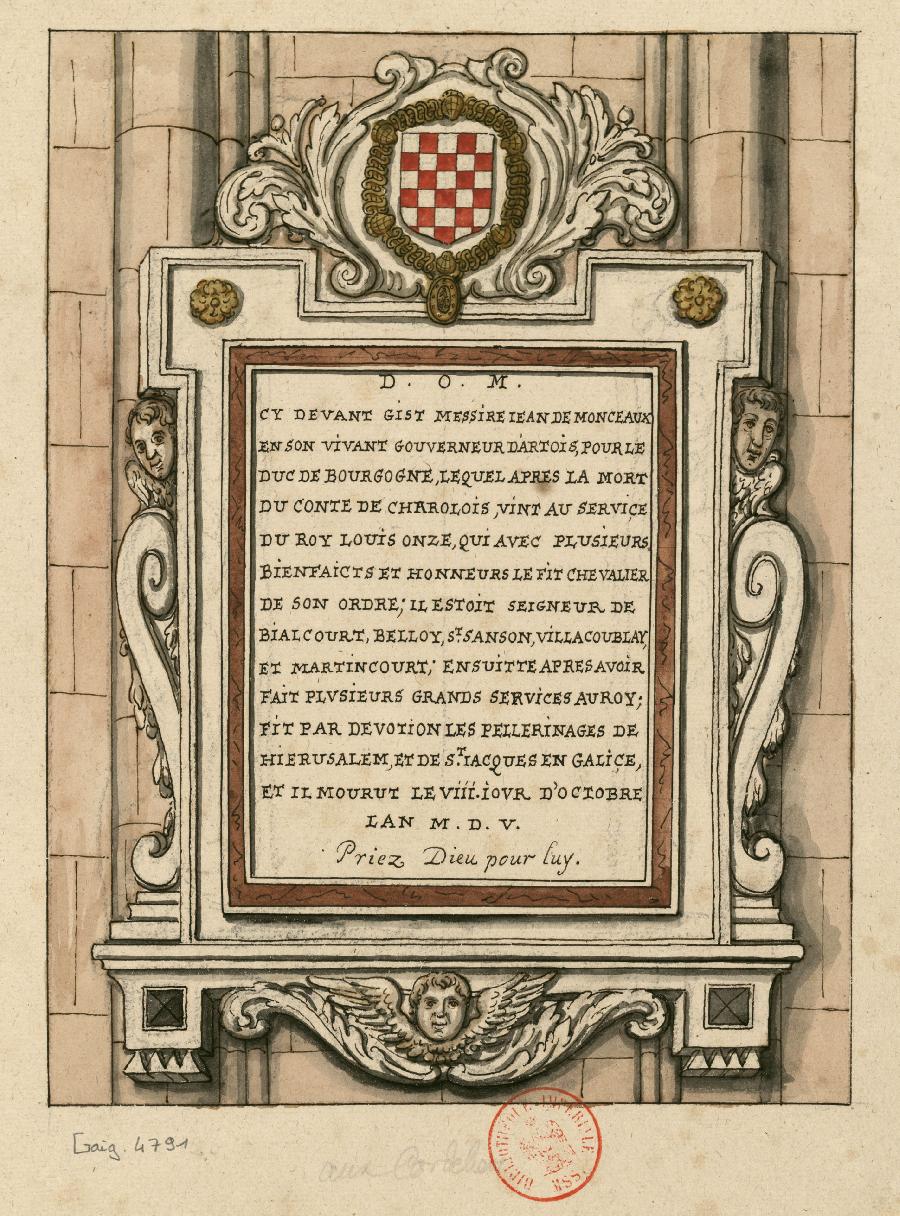 D. O. M.
CY DEVANT GIST MESSIRE IEAN DE MONCEAUX
EN SON VIVANT GOUVERNEUR D'ARTOIS, POUR LE
DUC DE BOURGOGNE, LEQUEL APRES LA MORT
DU CONTE DE CHAROLOIS, VINT AU SERVICE
DU ROY LOUIS ONZE, QUI AVEC PLUSIEURS
BIENFAICTS ET HONNEURS LE FIT CHEVALIER
DE SON ORDRE; IL ESTOIT SEIGNEUR DE
BIALCOURT, BELLOY, ST. SANSON, VILLACOUBLAY,
ET MARTINCOURT; ENSUITTE APRES AVOIR
FAIT PLVSIEURS GRANDS SERVICES AU ROY;
FIT PAR DEVOTION LES PELLERINAGES DE
HIERUSALEM, ET DE ST. IACQUES EN GALICE,
ET IL MOURUT LE VIII. IOVR D'OCTOBRE
LAN M. D. V.
Priez Dieu pour luy.
Gaig. 4791
aux Cordeliers
BIBLIOTHÈQUE IMPÉRIALE MSS